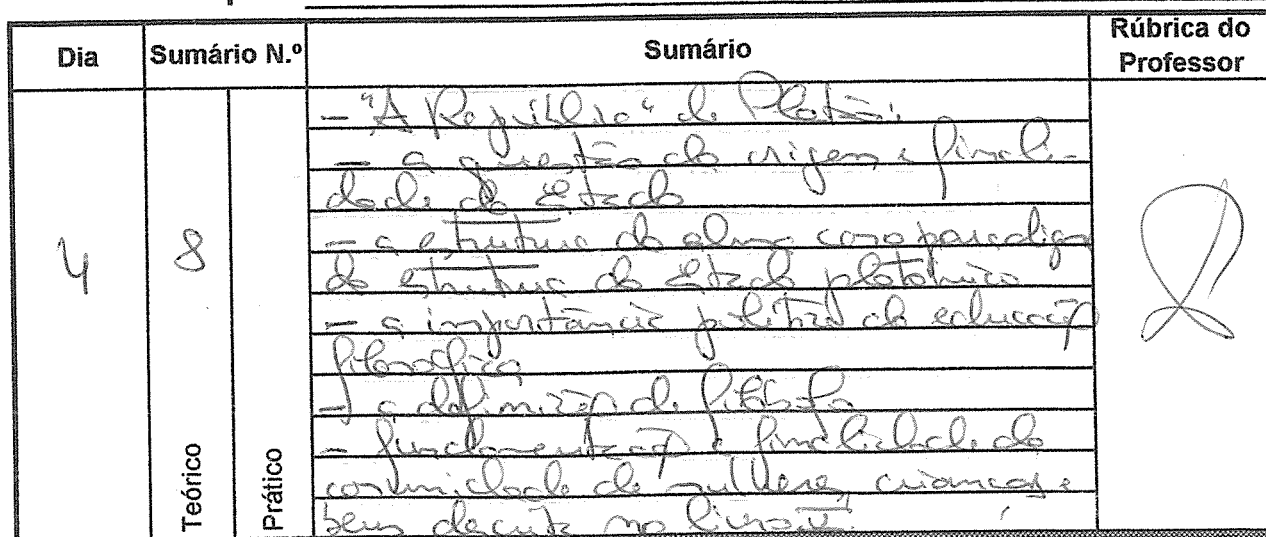 Dia Sumário N.º Sumário Rúbrica do Professor
4 8
Teórico
Prático
- "A República" de Platão:
- a questão da origem e finali-
dade do Estado
- a estrutura da alma como paradigma
da estrutura do Estado platónico
- a importância política da educação
filosófica
- a definição de filósofo
- fundamentação e finalidade da
comunidade de mulheres, crianças e
bens descrita no livro V.